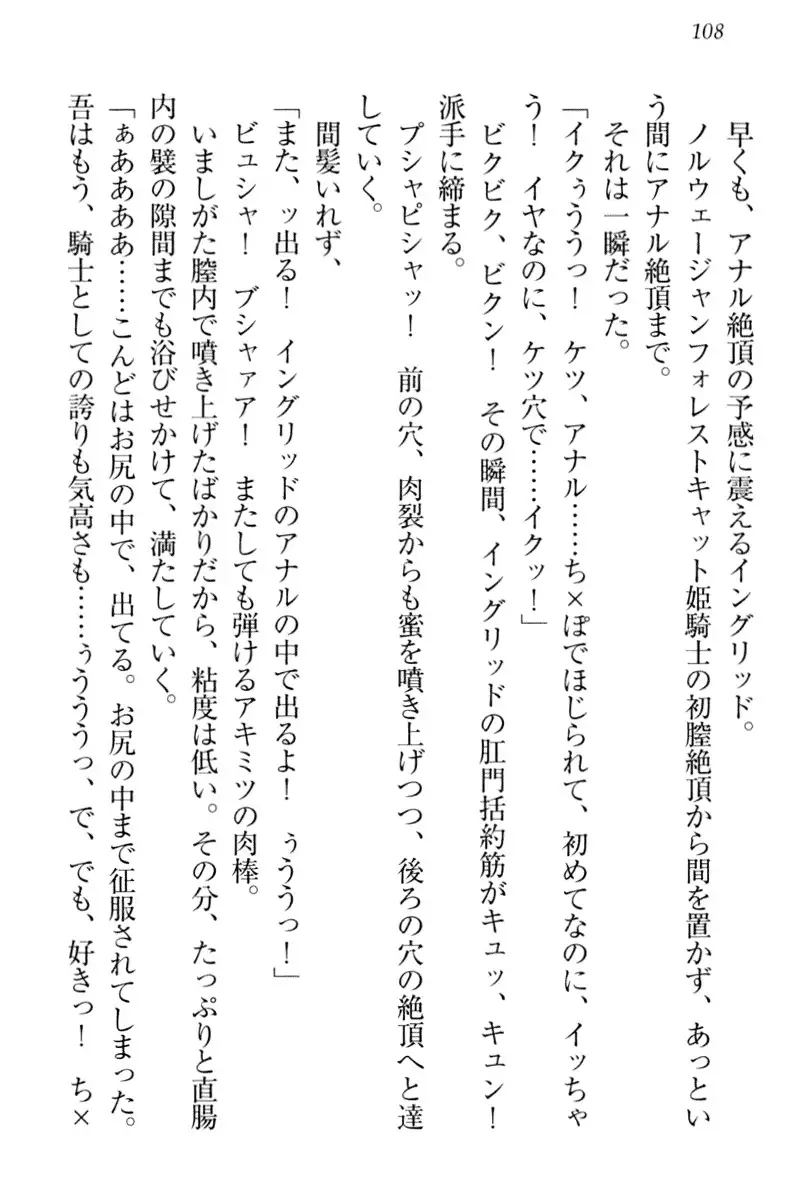 108
早くも、アナル絶頂の予感に震えるイングリッド。
ノルウェージャンフォレストキャット姫騎士の初膣絶頂から間を置かず、あっとい
う間にアナル絶頂まで。
それは一瞬だった。
「イクぅううっ！　ケツ、アナル……ち×ぽでほじられて、初めてなのに、イッちゃ
う！　イヤなのに、ケツ穴で……イクッ！」
ビクビク、ビクン！　その瞬間、イングリッドの肛門括約筋がキュッ、キュン！
派手に締まる。
プシャピシャッ！　前の穴、肉裂からも蜜を噴き上げつつ、後ろの穴の絶頂へと達
していく。
間髪いれず、
「また、ッ出る！　イングリッドのアナルの中で出るよ！　ぅううっ！」
ビュシャ！　ブシャァア！　またしても弾けるアキミツの肉棒。
いましがた膣内で噴き上げたばかりだから、粘度は低い。その分、たっぷりと直腸
内の襞の隙間までも浴びせかけて、満たしていく。
「ぁああああ……こんどはお尻の中で、出てる。お尻の中まで征服されてしまった。
吾はもう、騎士としての誇りも気高さも……ぅううっ、で、でも、好きっ！　ち×